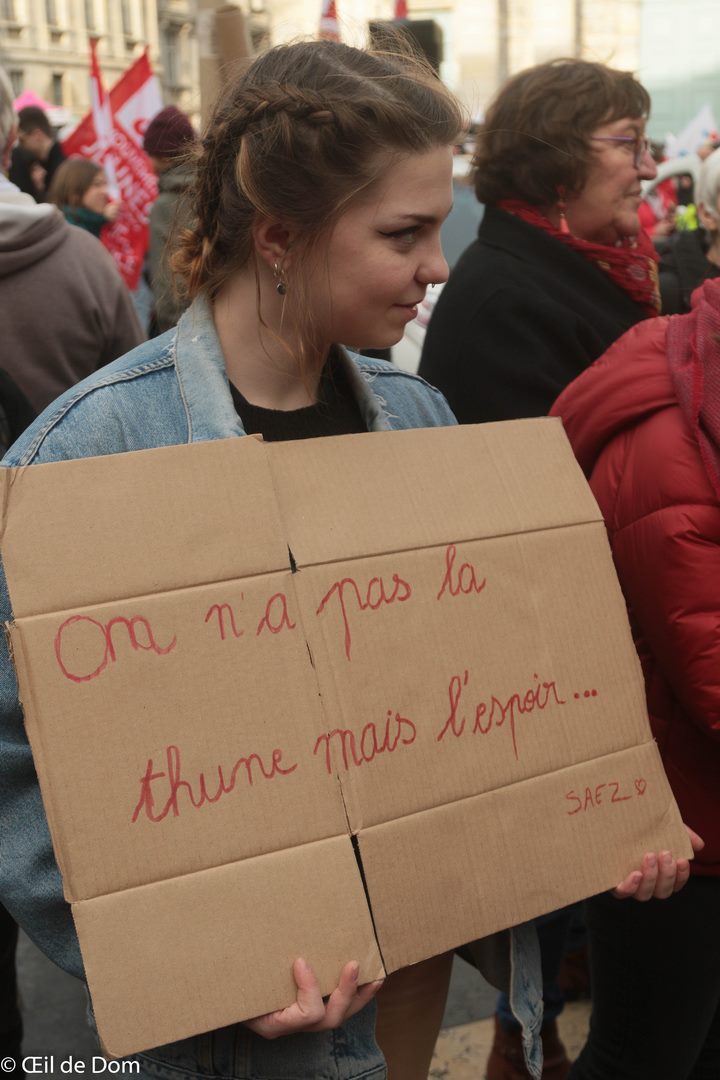 On n'a pas la
thune mais l'espoir...
SAEZ ♡
© Œil de Dom